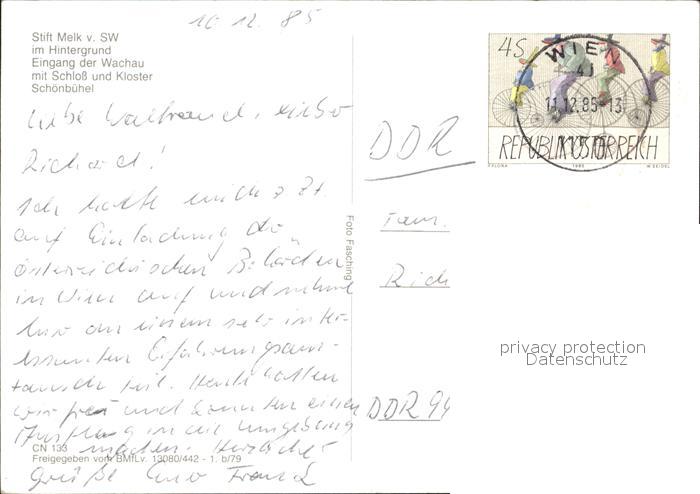 10.12.85
Stift Melk v. SW
im Hintergrund
Eingang der Wachau
mit Schloß und Kloster
Schönbühel
Liebe Waltraud, lieber
Richard!
Ich halte mich z. Zt.
auf Einladung der
österreichischen Behörden
in Wien auf und nehme
hier an einem sehr inter-
essanten Erfahrungsaus-
tausch teil. Heute hatten
wir frei und konnten einen
Ausflug in die Umgebung
machen. Herzliche
Grüße Euer
CN 133
Freigegeben vom BMfLv. 13080/442 - 1. b/79
Foto Fasching
4S
WIEN
11.12.85-13
REPUBLIK ÖSTERREICH
1985
W. SEIDEL
DDR
Fam.
Rich
DDR 94
privacy protection
Datenschutz